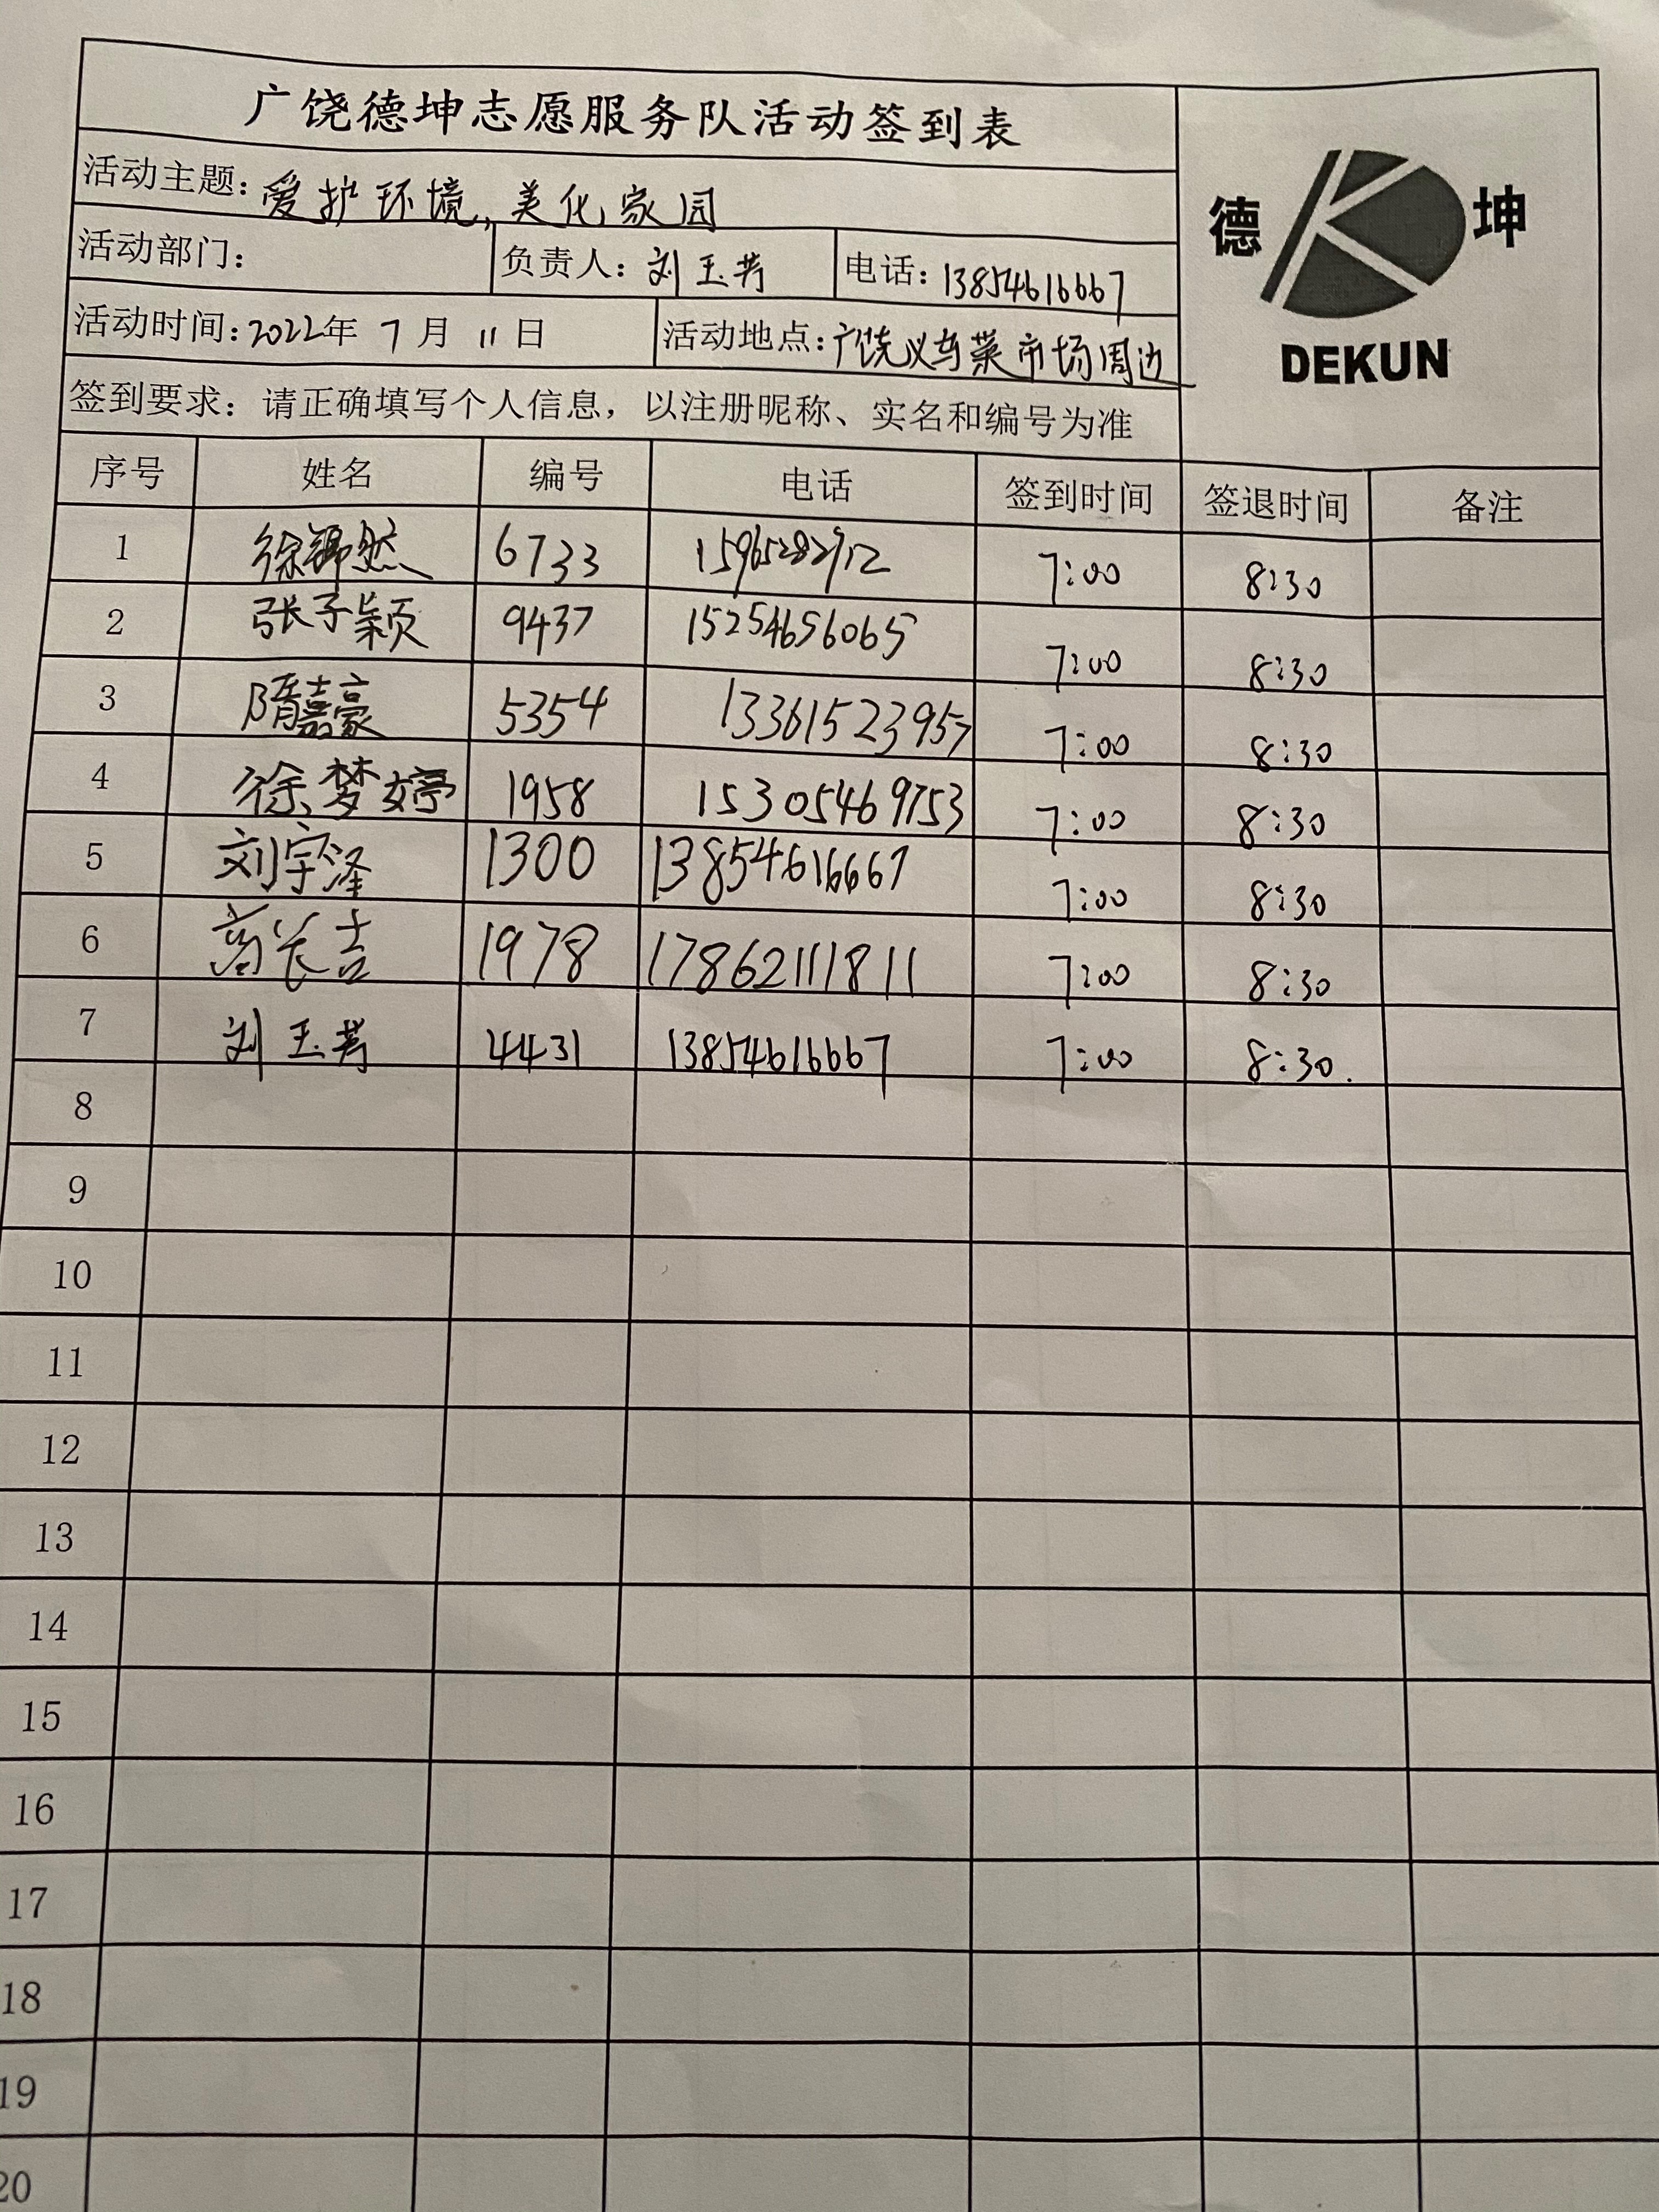 广饶德坤志愿服务队活动签到表
德 坤
DEKUN
活动主题：爱护环境，美化家园
活动部门： 负责人：刘玉芳 电话：13854616667
活动时间：2022年 7 月 11 日 活动地点：广饶义乌菜市场周边
签到要求：请正确填写个人信息，以注册昵称、实名和编号为准
序号 姓名 编号 电话 签到时间 签退时间 备注
1 徐 然 6733 15965282912 7:00 8:30
2 张子颖 9437 15254656065 7:00 8:30
3 隋嘉豪 5354 13361523957 7:00 8:30
4 徐梦婷 1958 15305469753 7:00 8:30
5 刘宇泽 1300 13854616667 7:00 8:30
6 长吉 1978 17862111811 7:00 8:30
7 刘玉芳 4431 13854616667 7:00 8:30.
8
9
10
11
12
13
14
15
16
17
18
19
20